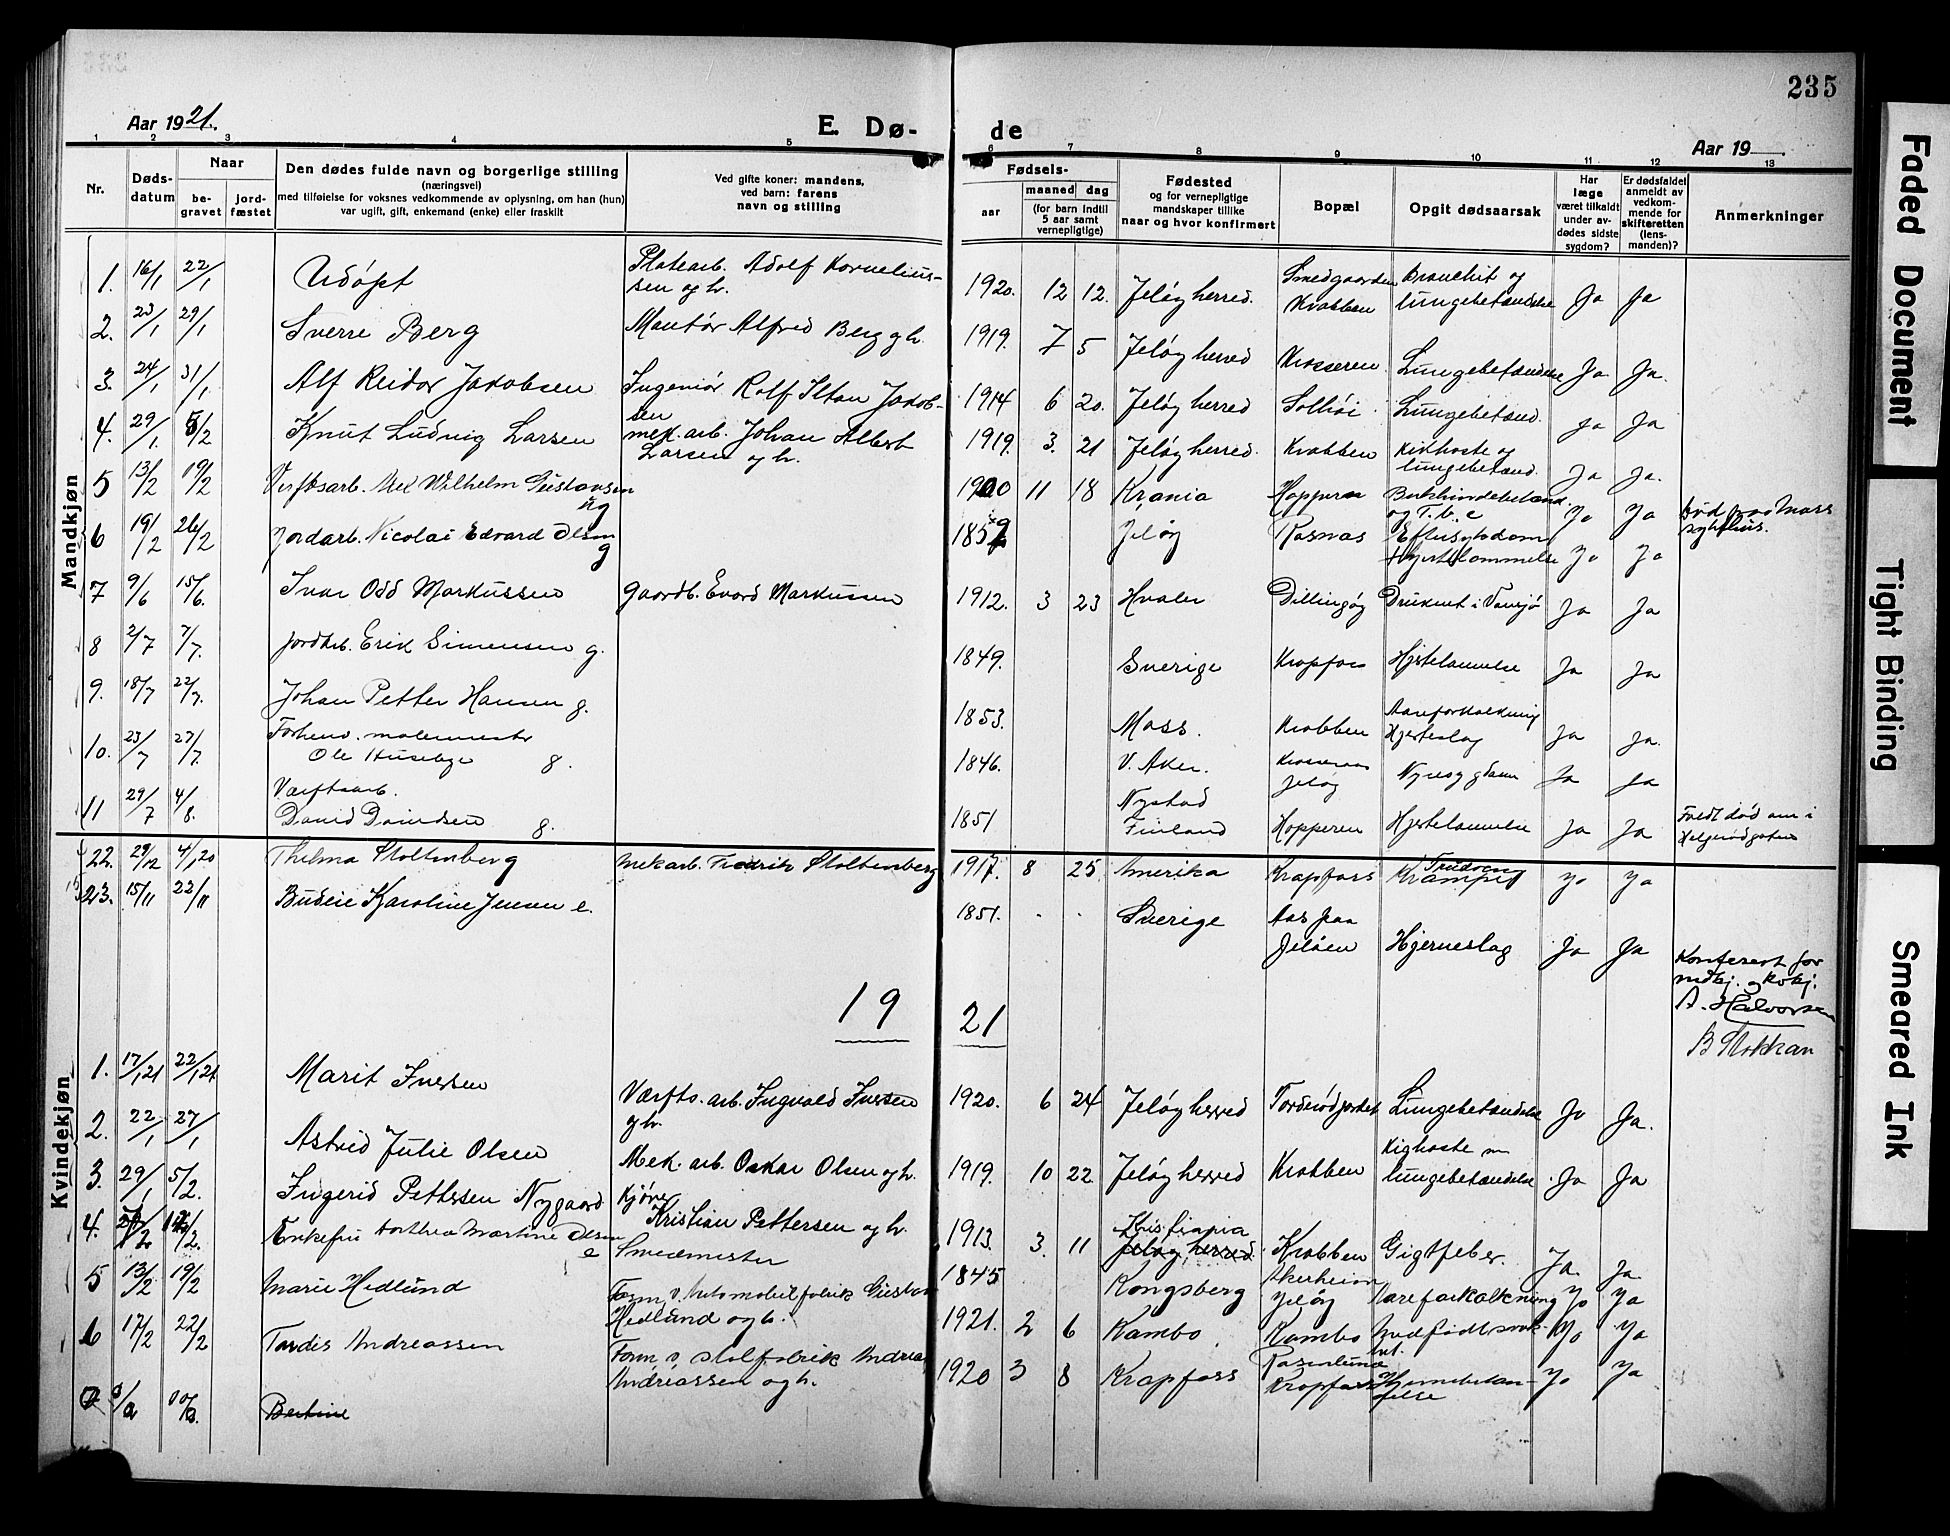 235
Aar 1921.
E. Dø-
de
Aar 19
1 2 3 4 5 6 7 8 9 10 11 12 13
Nr.
Døds-
datum
Naar
be-
gravet
jord-
fæstet
Den dødes fulde navn og borgerlige stilling
(næringsvei)
med tilføielse for voksnes vedkommende av oplysning, om han (hun)
var ugift, gift, enkemand (enke) eller fraskilt
Ved gifte koner: mandens,
ved barn: farens
navn og stilling
Fødsels-
aar
maaned dag
(for barn indtil
5 aar samt
vernepligtige)
Fødested
og for vernepligtige
mandskaper tillike
naar og hvor konfirmert
Bopæl
Opgit dødsaarsak
Har
læge
været tilkaldt
under av-
dødes sidste
sygdom?
Er dødsfaldet
anmeldt av
vedkom-
mende for
skifteretten
(lens-
manden)?
Anmerkninger
Mandkjøn
1. 16/1 22/1 Udøpt Platearb. Adolf Kornelius-
sen og h. 1920. 12 12. Jeløy herred. Smedgaarden
Krabben Bronchit og
lungebetændelse Ja Ja
2. 23/1 29/1 Sverre Berg Montør Alfred Berg g h. 1919. 7 5 Jeløy herred Krosseren Lungebetændelse Ja Ja.
3. 24/1 31/1 Alf Reidar Jakobsen Ingeniør Rolf Iltan Jakob-
sen 1914 6 20. Jeløy herred Solhøi. Lungebetænd. Ja Ja
4. 29/1 5/2 Knut Ludvig Larsen mek. arb. Johan Albert
Larsen og h. 1919. 3. 21 Jeløy herred. Krabben Kikhoste og
lungebetænd. Ja Ja.
5 13/2 19/2 Verftsarb. Wilhelm Gustavsen
ug 1900 11 18 Krania Hopperen
og T.b.c Jo Ja Død paa Moss
sykehus.
6 19/2 26/2 Jordarb. Nicolai Edvard Olsen
g Jeløy Rosnæs
Hjertelammelse Jo Ja
7 9/6 15/6. Ivar Odd Markussen Gaardb. Evard Markussen 1912. 3 23 Hvaler Dillingøy Druknet i Vansjø Ja Ja
8 2/7 7/7. Jordarb. Erik Simensen g. 1849. Sverige Krapfoss Hjertelammelse Ja Ja
9. 18/7 22/7. Johan Petter Hansen g. 1853. Moss. Krabben Aareforkalkning
Hjerteslag Ja Ja.
10. 23/7 27/7. Forhenv. malermester
Ole Huseby g. 1846. V. Aker. Krosseren
Jeløy Nyresygdom Ja Ja
11 29/7 4/8. Værftsarb.
David Davidsen g. 1851 Nystad
Finland Hopperen Hjertelammelse Ja Ja Fundet død
Helgerødgaten
22. 29/12 4/1 20 Thelma Stoltenberg Mek arb. Fredrik Stoltenberg 1917. 8 25 Amerika Krapfoss
Kramper Jo Ja
23. 15/11 22/11 Karoline Jensen e. 1851. Sverige Aas paa
Jeløen Hjerneslag Ja Ja
19 21
Konferert for
mdkj. og kvkj.
A. Halvorsen
B Stokkan
Kvindekjøn
1. 17/1 21 22/1 21 Marit Iversen Værfts. arb. Ingvald Iversen
og h. 1920. 6 24 Jeløy herred Lungebetændelse Jo Ja.
2. 22/1 27/1 Astrid Julie Olsen Mek. arb. Oskar Olsen og h. 1919. 10 22 Jeløy herred Krabben Kighoste m
lungebetændelse Ja Ja
3. 29/1 5/2. Ingerid Pettersen Nygaard Kjører
Kristian Pettersen og h. 1913. 3. 11 Kristiania
Jeløy herred. Krabben Gigtfeber. Ja. Ja.
4. Enkefru Dorthea Martine Olsen
e Smedmester 1845 Kongsberg Akerheim
Jeløy Aareforkalkning Jo Ja
5 13/2 19/2 Marie Hedlund Form. v. Automobilfabrik Gustav
Hedlund og h. 1921. 2 6 Kambo Kambo Jo Ja
6 17/2 22/2 Tordis Andreassen Form v stolfabrik Andreas
Andreassen og h. 1920 3 8 Krapfoss Rosenlund
Krapfoss Hjernebetæn-
delse Jo Ja
Bertine
Faded Document
Tight Binding
Smeared Ink